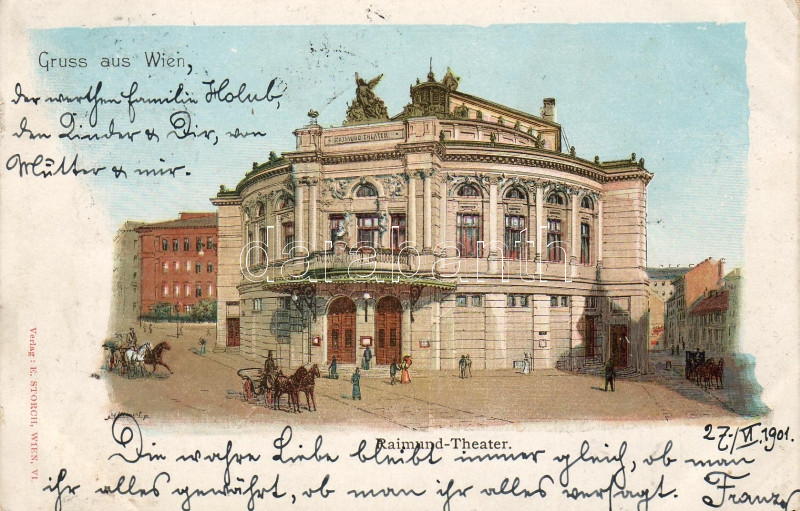 Gruss aus Wien,
der werthen Familie Holub,
den Kinder & Dir, von
Mutter & mir.
RAIMUND-THEATER
darabanth
Verlag: E. STORCH, WIEN, VI.
Raimund-Theater.
27./VI.1901.
Die wahre Liebe bleibt immer gleich, ob man
ihr alles gewährt, ob man ihr alles versagt. Franz